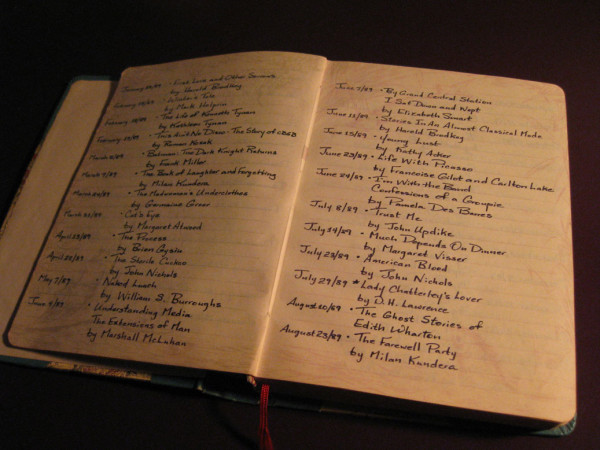 · First Love and Other Sorrows
by Harold Brodkey
· Winter's Tale
by Mark Helprin
· The Life of Kenneth Tynan
by Kathleen Tynan
· This Ain't No Disco: The Story of CBGB
by Roman Kozak
· Batman: The Dark Knight Returns
by Frank Miller
March 9/89 · The Book of Laughter and Forgetting
by Milan Kundera
· The Madwoman's Underclothes
by Germaine Greer
· Cat's Eye
by Margaret Atwood
April 13/89 · The Process
by Brion Gysin
· The Sterile Cuckoo
by John Nichols
May 7/89 · Naked Lunch
by William S. Burroughs
· Understanding Media
The Extensions of Man
by Marshall McLuhan
June 7/89 · By Grand Central Station
I Sat Down and Wept
by Elizabeth Smart
· Stories In An Almost Classical Mode
by Harold Brodkey
June 15/89 · Young Lust
by Kathy Acker
June 23/89 · Life With Picasso
by Francoise Gilot and Carlton Lake
· I'm With the Band
Confessions of a Groupie
by Pamela Des Barres
July 8/89 · Trust Me
by John Updike
July 19/89 · Much Depends On Dinner
by Margaret Visser
July 25/89 · American Blood
by John Nichols
July 29/89 * Lady Chatterley's Lover
by D.H. Lawrence
August 10/89 · The Ghost Stories of
Edith Wharton
August 23/89 · The Farewell Party
by Milan Kundera